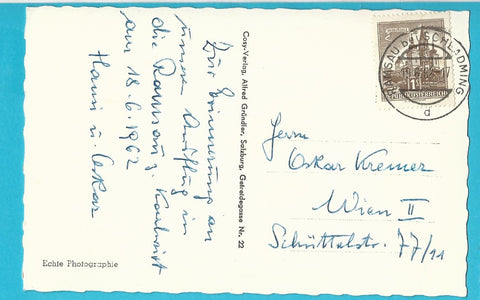 Zur Erinnerung an
unseren Ausflug in
die Ramsau z.
am 18.6.1962
Hansi u. Oskar
Echte Photographie
Cosy-Verlag, Alfred Gründler, Salzburg, Getreidegasse Nr. 22
RAMSAU BEI SCHLADMING
d
Herrn
Oskar Kremer
Wien II
Schüttelstr. 77/11